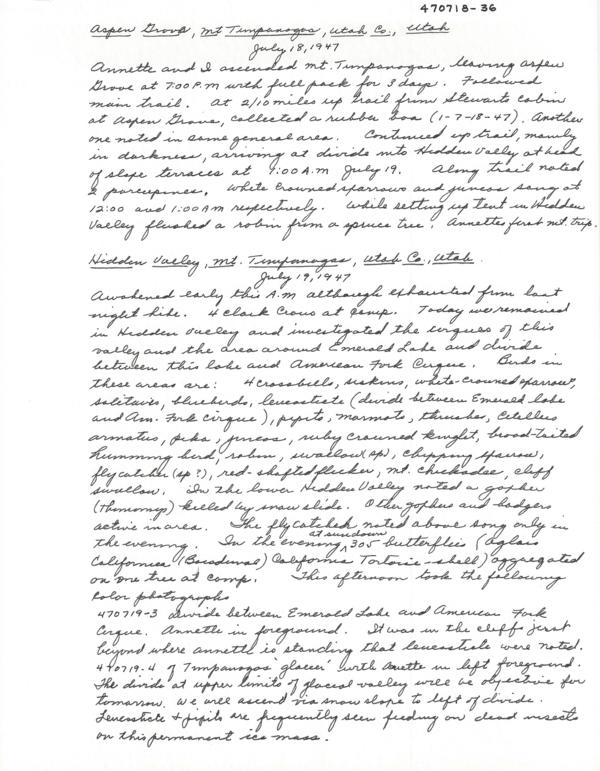 470718-36
Aspen Grove, Mt Timpanogos, Utah Co., Utah
July 18, 1947
Annette and I ascended Mt. Timpanogos, leaving aspen
Grove at 7:00 P.m with full pack for 3 days. Followed
main trail. At 2/10 miles up trail from Stewarts cabin
at Aspen Grove, collected a rubber boa (1-7-18-47). Another
one noted in same general area. Continued up trail, mainly
in darkness, arriving at divide into Hidden Valley at head
of slope terraces at 9:00 A.M July 19. Along trail noted
2 porcupines. White Crowned sparrows and juncos sang at
12:00 and 1:00 AM respectively. While setting up tent in Hidden
Valley flushed a robin from a spruce tree. Annettes first mt. trip.
Hidden Valley, Mt. Timpanogos, Utah Co., Utah.
July 19, 1947
Awakened early this A.M although exhausted from last
night hike. 4 Clark Crows at camp. Today we remained
in Hidden Valley and investigated the cirques of this
valley and the area around Emerald Lake and divide
between this lake and American Fork Cirque. Birds in
these areas are: 4 crossbills, siskins, white-crowned sparrows,
solitaires, bluebirds, leucosticte (divide between Emerald lake
and Am. Fork cirque), pipits, marmots, thrushes, Citellus
armatus, pika, juncos, ruby crowned kinglet, broad-tailed
humming bird, robin, swallow (sp), chipping sparrow,
flycatcher (sp?), red-shafted flicker, mt. chickadee, cliff
swallow. In the lower Hidden Valley noted a gopher
(Thomomys) killed by snow slide. Other gophers and badgers
active in area. The flycatcher noted above song only in
the evening. In the evening at sundown 305 butterflies (Aglais
California (Boisduval) California Tortoise-shell) aggregated
on one tree at camp. This afternoon took the following
color photographs
470719-3 divide between Emerald Lake and American Fork
Cirque. Annette in foreground. It was in the cliffs just
beyond where Annette is standing that leucosticte were noted.
470719-4 of Timpanogos 'glacier' with Anette in left foreground.
The divide at upper limits of glacial valley will be objective for
tomorrow. We will ascend via snow slope to left of divide.
Leucosticte + pipits are frequently seen feeding on dead insects
on this permanent ice mass.